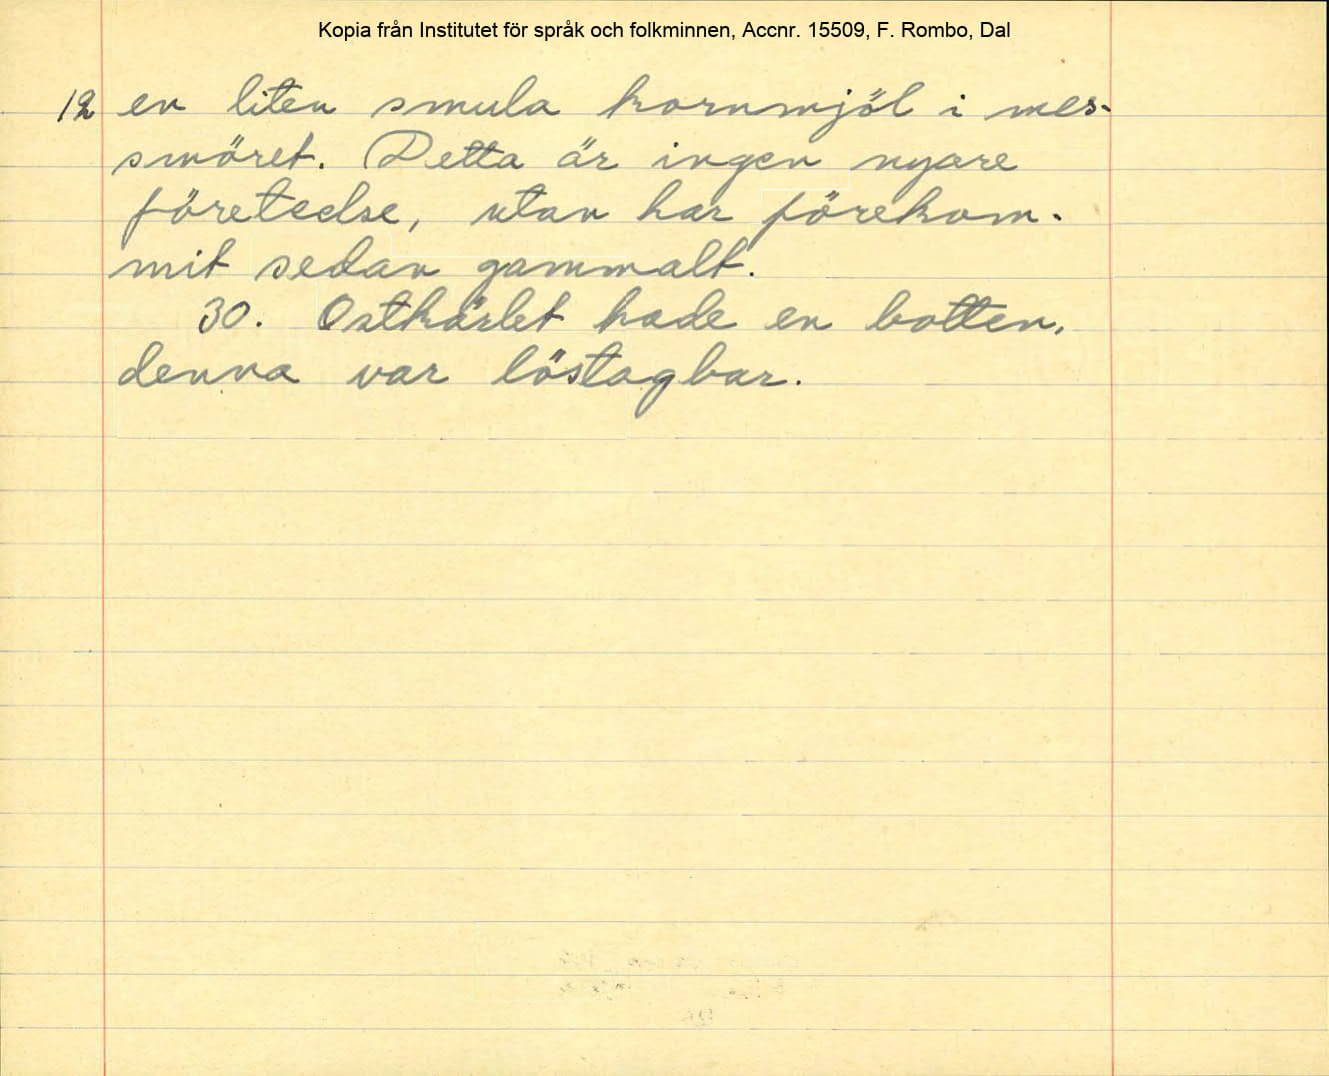 Kopia från Institutet för språk och folkminnen, Accnr. 15509, F. Rombo, Dal
12 en liten smula kornmjöl i mes-
smöret. Detta är ingen nyare
företeelse, utan har förekom-
mit sedan gammalt.
30. Ostkärlet hade en botten,
denna var löstagbar.